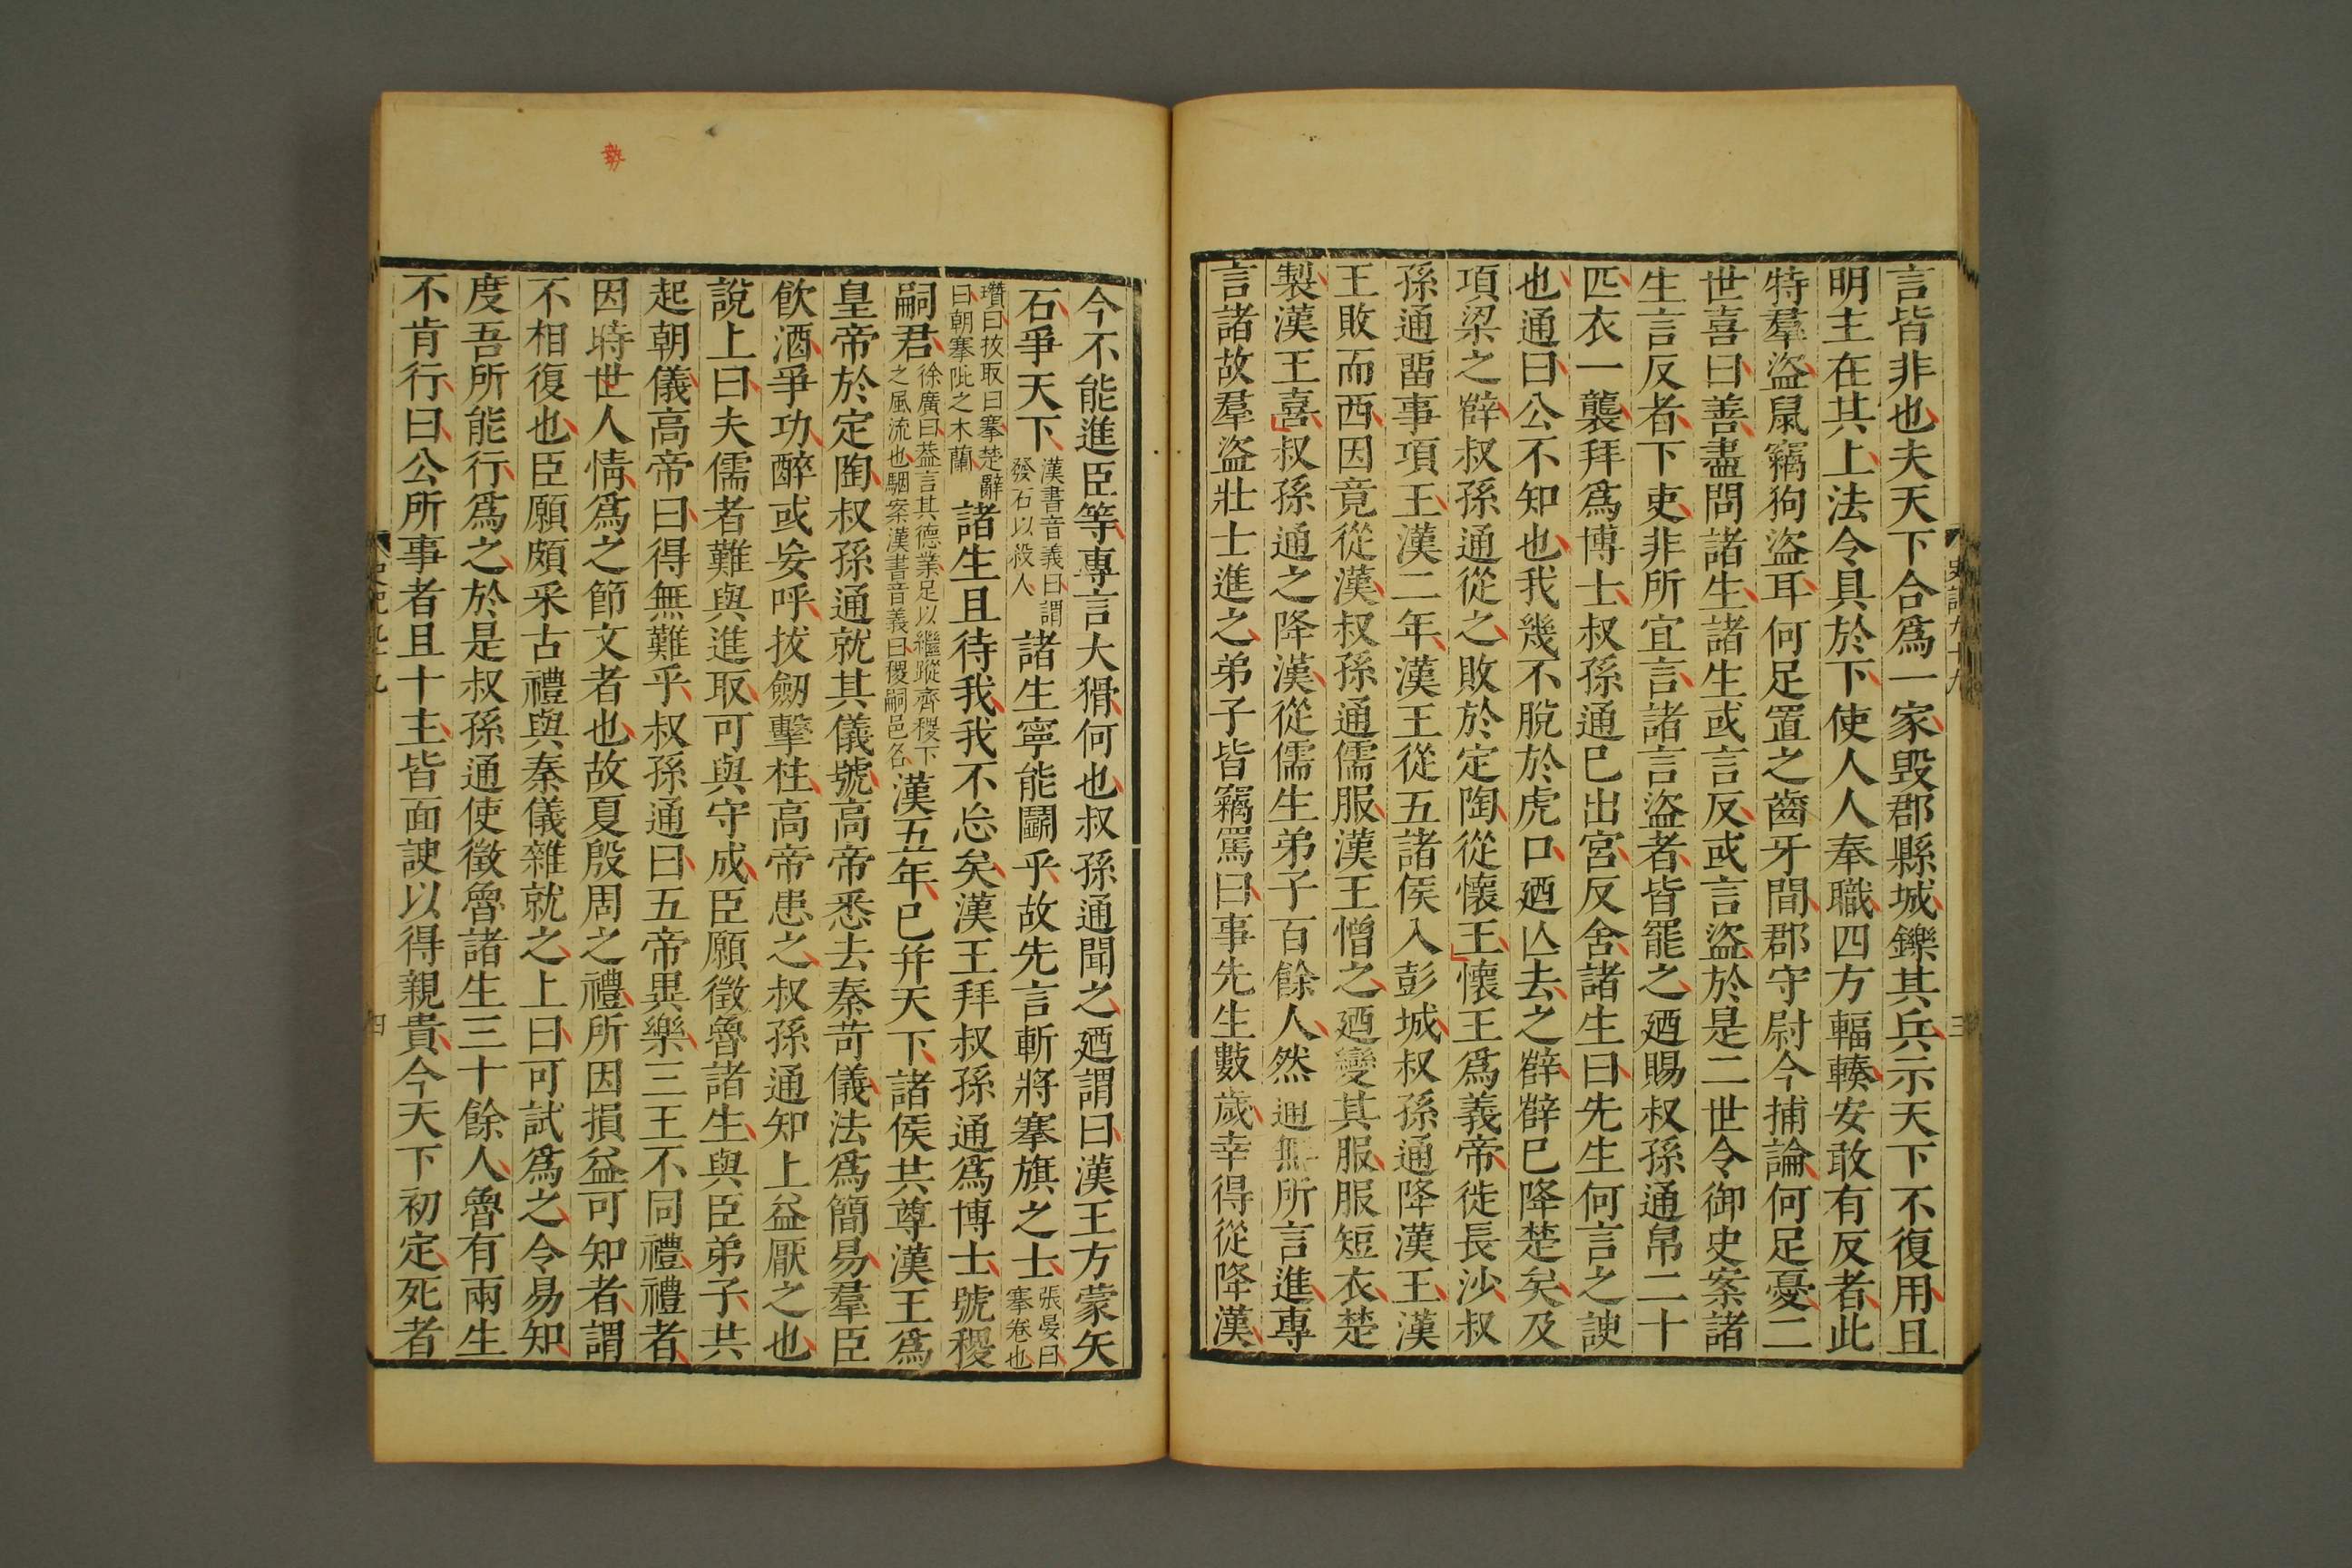 言皆非也夫天下合爲一家毀郡縣城鑠其兵示天下不復用且
明主在其上法令具於下使人人奉職四方輻輳安敢有反者此
特羣盜鼠竊狗盜耳何足置之齒牙間郡守尉今捕論何足憂二
世喜曰善盡問諸生諸生或言反或言盜於是二世令御史案諸
生言反者下吏非所宜言諸言盜者皆罷之廼賜叔孫通帛二十
匹衣一襲拜爲博士叔孫通巳出宮反舍諸生曰先生何言之諛
也通曰公不知也我幾不脫於虎口廼亾去之薛薛巳降楚矣及
項梁之薛叔孫通從之敗於定陶從懷王懷王爲義帝徙長沙叔
孫通畱事項王漢二年漢王從五諸侯入彭城叔孫通降漢王漢
王敗而西因竟從漢叔孫通儒服漢王憎之廼變其服服短衣楚
製漢王喜叔孫通之降漢從儒生弟子百餘人然通無所言進專
言諸故羣盜壯士進之弟子皆竊罵曰事先生數歲幸得從降漢
史記九十九
三
今不能進臣等專言大猾何也叔孫通聞之廼謂曰漢王方蒙矢
石爭天下漢書音義曰謂發石以殺人諸生寧能鬭乎故先言斬將搴旗之士張晏曰搴卷也
瓚曰拔取曰搴楚辭曰朝搴阰之木蘭諸生且待我我不忘矣漢王拜叔孫通爲博士號稷
嗣君徐廣曰葢言其德業足以繼蹤齊稷下之風流也駰案漢書音義曰稷嗣邑名漢五年已幷天下諸侯共尊漢王爲
皇帝於定陶叔孫通就其儀號高帝悉去秦苛儀法爲簡易羣臣
飮酒爭功醉或妄呼拔劒擊柱高帝患之叔孫通知上益厭之也
說上曰夫儒者難與進取可與守成臣願徵魯諸生與臣弟子共
起朝儀高帝曰得無難乎叔孫通曰五帝異樂三王不同禮禮者
因時世人情爲之節文者也故夏殷周之禮所因損益可知者謂
不相復也臣願頗采古禮與秦儀雜就之上曰可試爲之令易知
度吾所能行爲之於是叔孫通使徵魯諸生三十餘人魯有兩生
不肯行曰公所事者且十主皆面諛以得親貴今天下初定死者
史記九十九
四